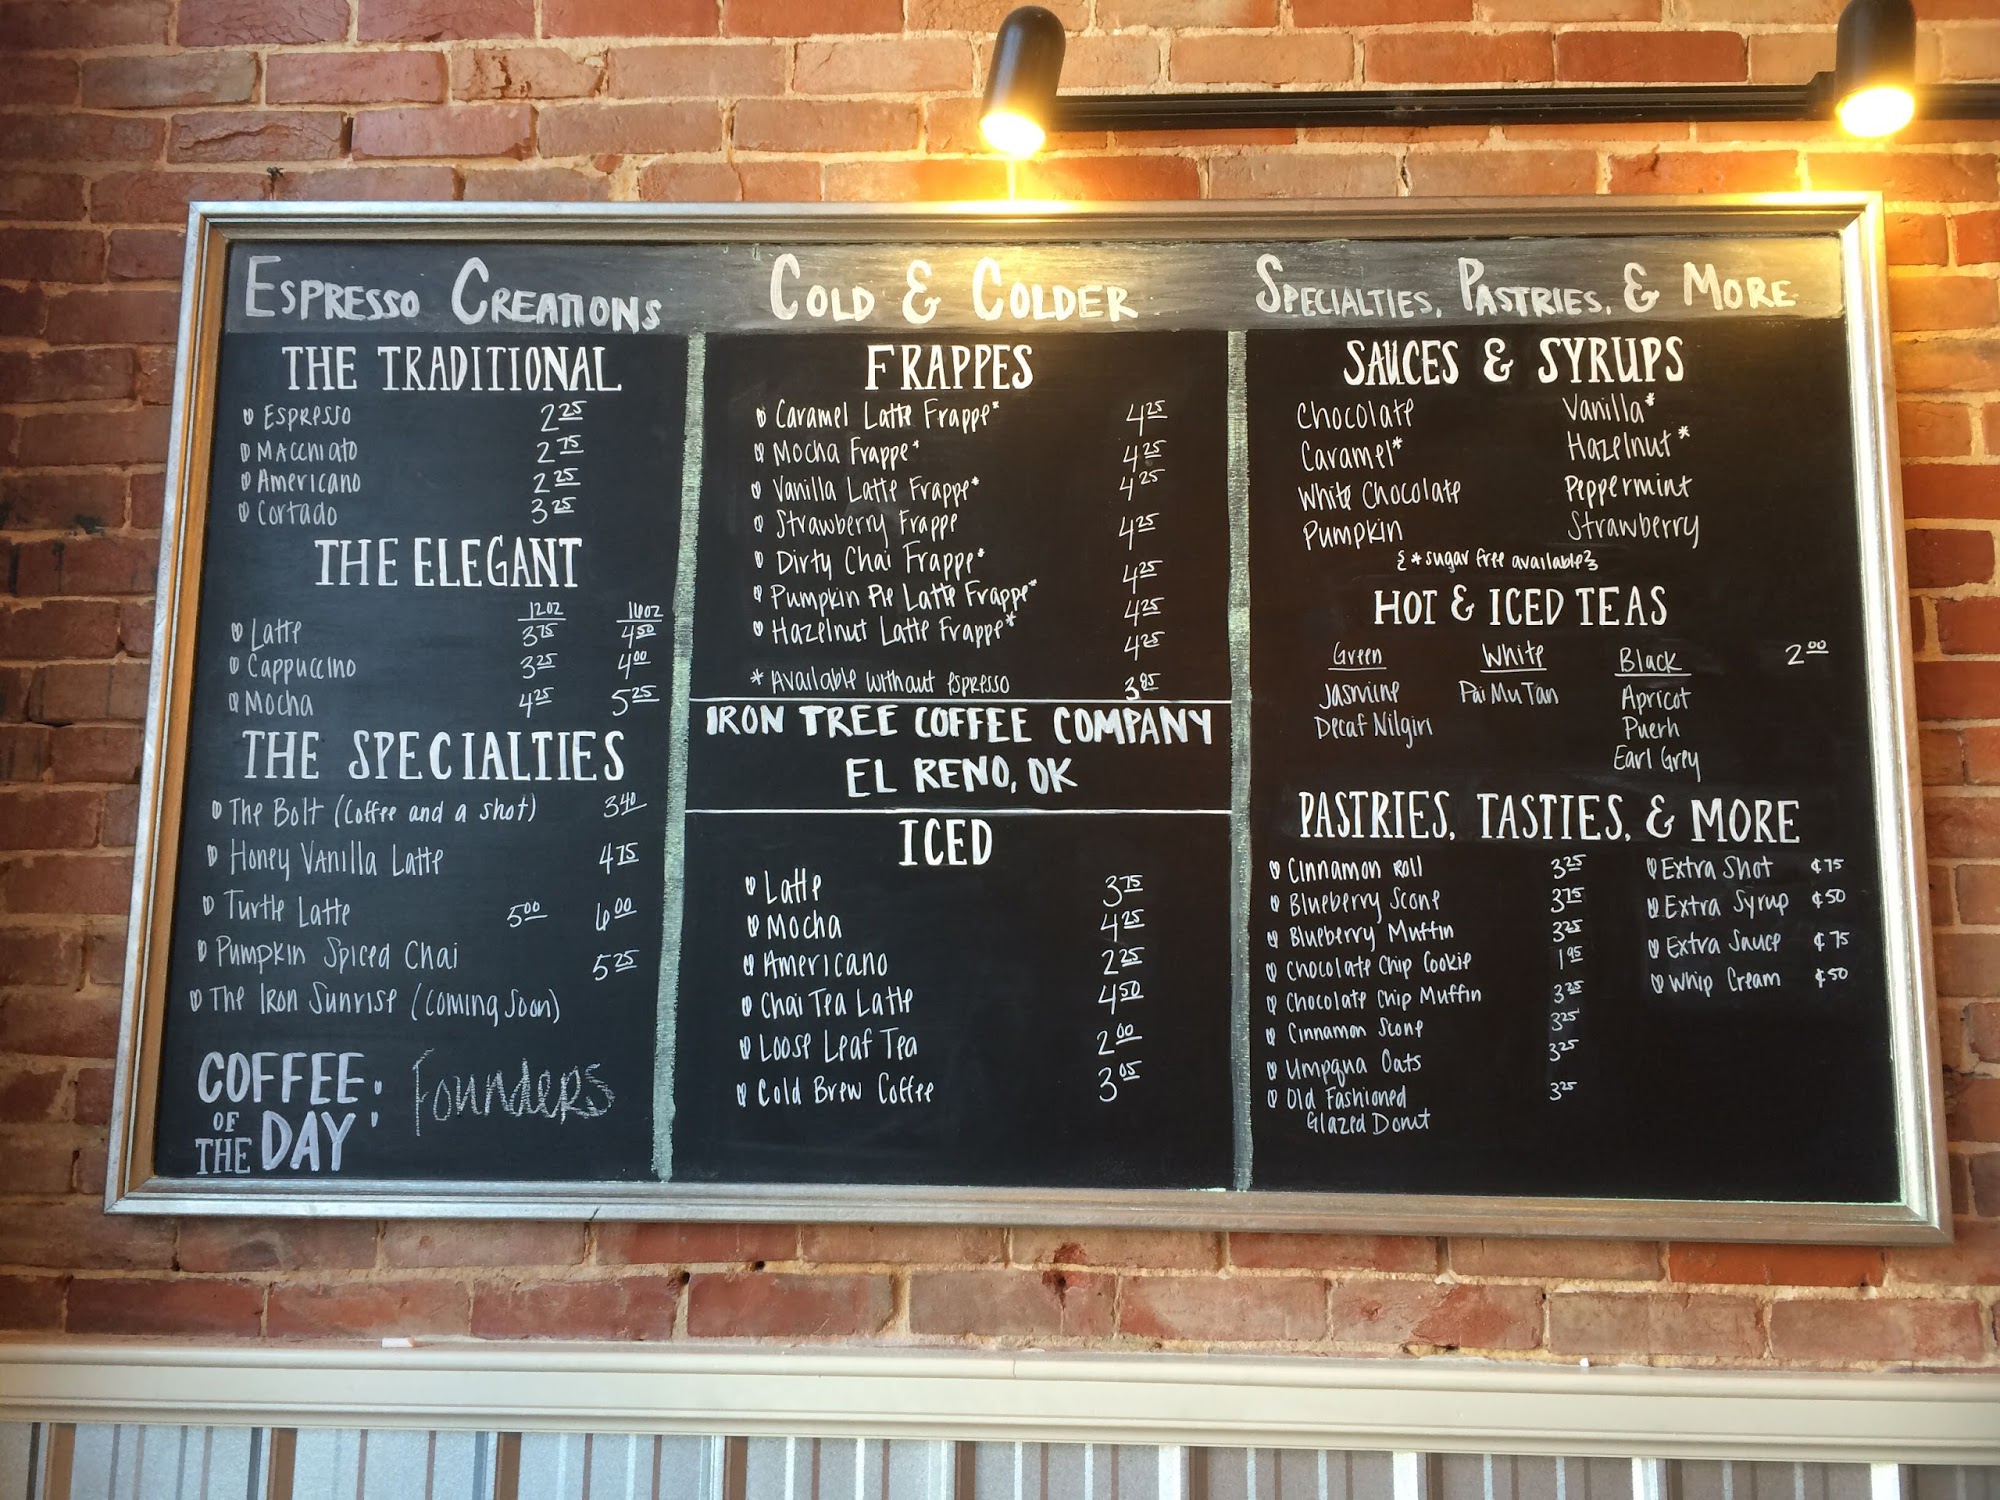 Espresso Creations
THE TRADITIONAL
Espresso 2.25
Macchiato 2.75
Americano 2.25
Cortado 3.25
THE ELEGANT
12oz 16oz
Latte 3.75 4.50
Cappuccino 3.25 4.00
Mocha 4.25 5.25
THE SPECIALTIES
The Bolt (Coffee and a shot) 3.40
Honey Vanilla Latte 4.75
Turtle Latte 5.00 6.00
Pumpkin Spiced Chai 5.25
The Iron Sunrise (Coming Soon)
COFFEE OF THE DAY: Founders
Cold & Colder
FRAPPES
Caramel Latte Frappe* 4.25
Mocha Frappe* 4.25
Vanilla Latte Frappe* 4.25
Strawberry Frappe 4.25
Dirty Chai Frappe* 4.25
Pumpkin Pie Latte Frappe* 4.25
Hazelnut Latte Frappe* 4.25
* Available without espresso 3.85
IRON TREE COFFEE COMPANY
EL RENO, OK
ICED
Latte 3.75
Mocha 4.25
Americano 2.25
Chai Tea Latte 4.50
Loose Leaf Tea 2.00
Cold Brew Coffee 3.05
Specialties, Pastries, & More
SAUCES & SYRUPS
Chocolate Vanilla*
Caramel* Hazelnut*
White Chocolate Peppermint
Pumpkin Strawberry
{*sugar free available}
HOT & ICED TEAS
Green White Black 2.00
Jasmine Pai Mu Tan Apricot
Decaf Nilgiri Puerh
Earl Grey
PASTRIES, TASTIES, & MORE
Cinnamon Roll 3.25
Blueberry Scone 3.75
Blueberry Muffin 3.25
Chocolate Chip Cookie 1.95
Chocolate Chip Muffin 3.25
Cinnamon Scone 3.25
Umpqua Oats 3.25
Old Fashioned 3.25
Glazed Donut
Extra Shot ¢75
Extra Syrup ¢50
Extra Sauce ¢75
Whip Cream ¢50